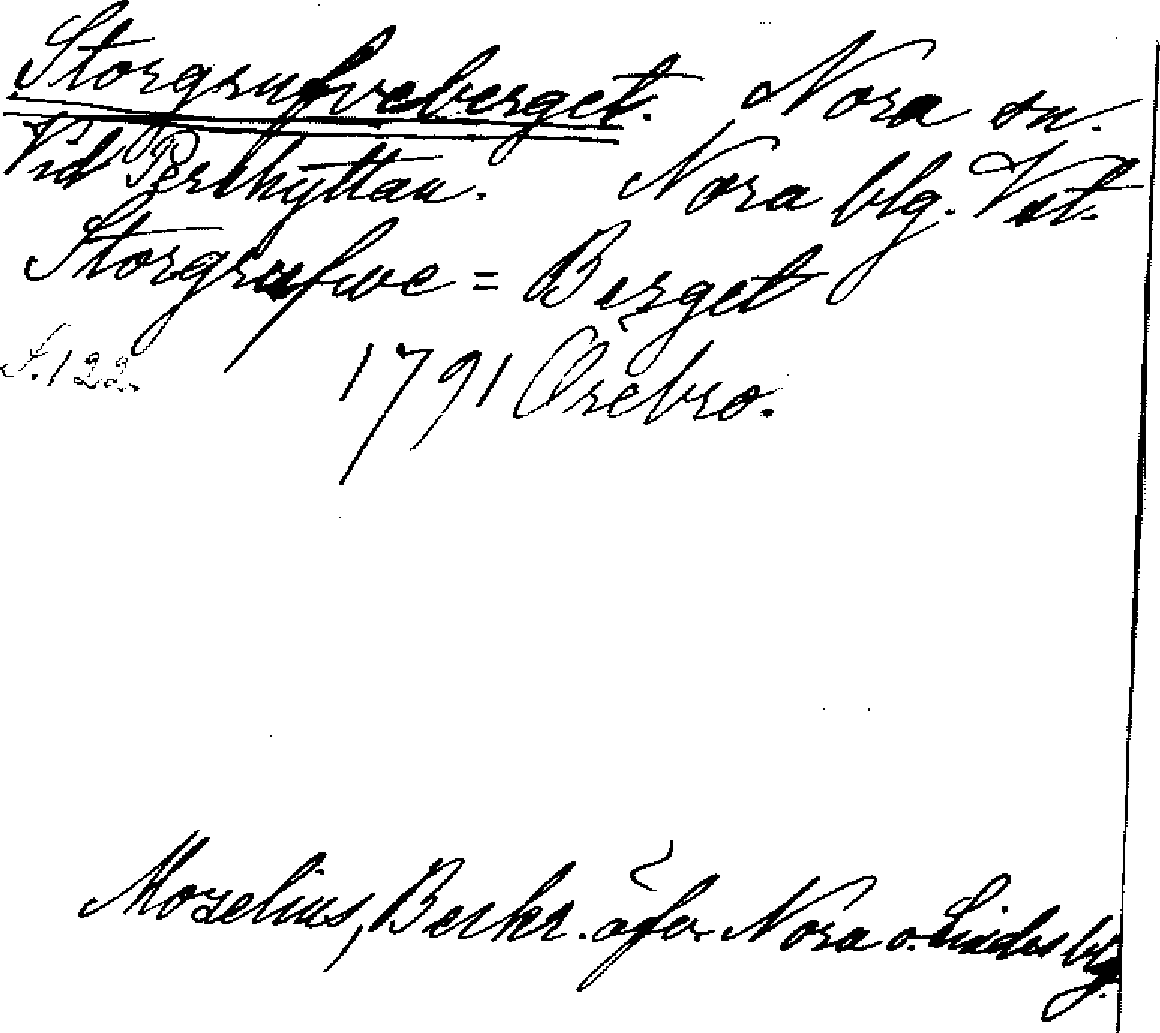 Storgrufveberget. Nora sn.
Vid Pershyttan. Nora blg. Vst.
Storgrufwe = Berget
S. 122. 1791 Örebro.
Mozelius, Beskr. öfver Nora o. Lindes blg.